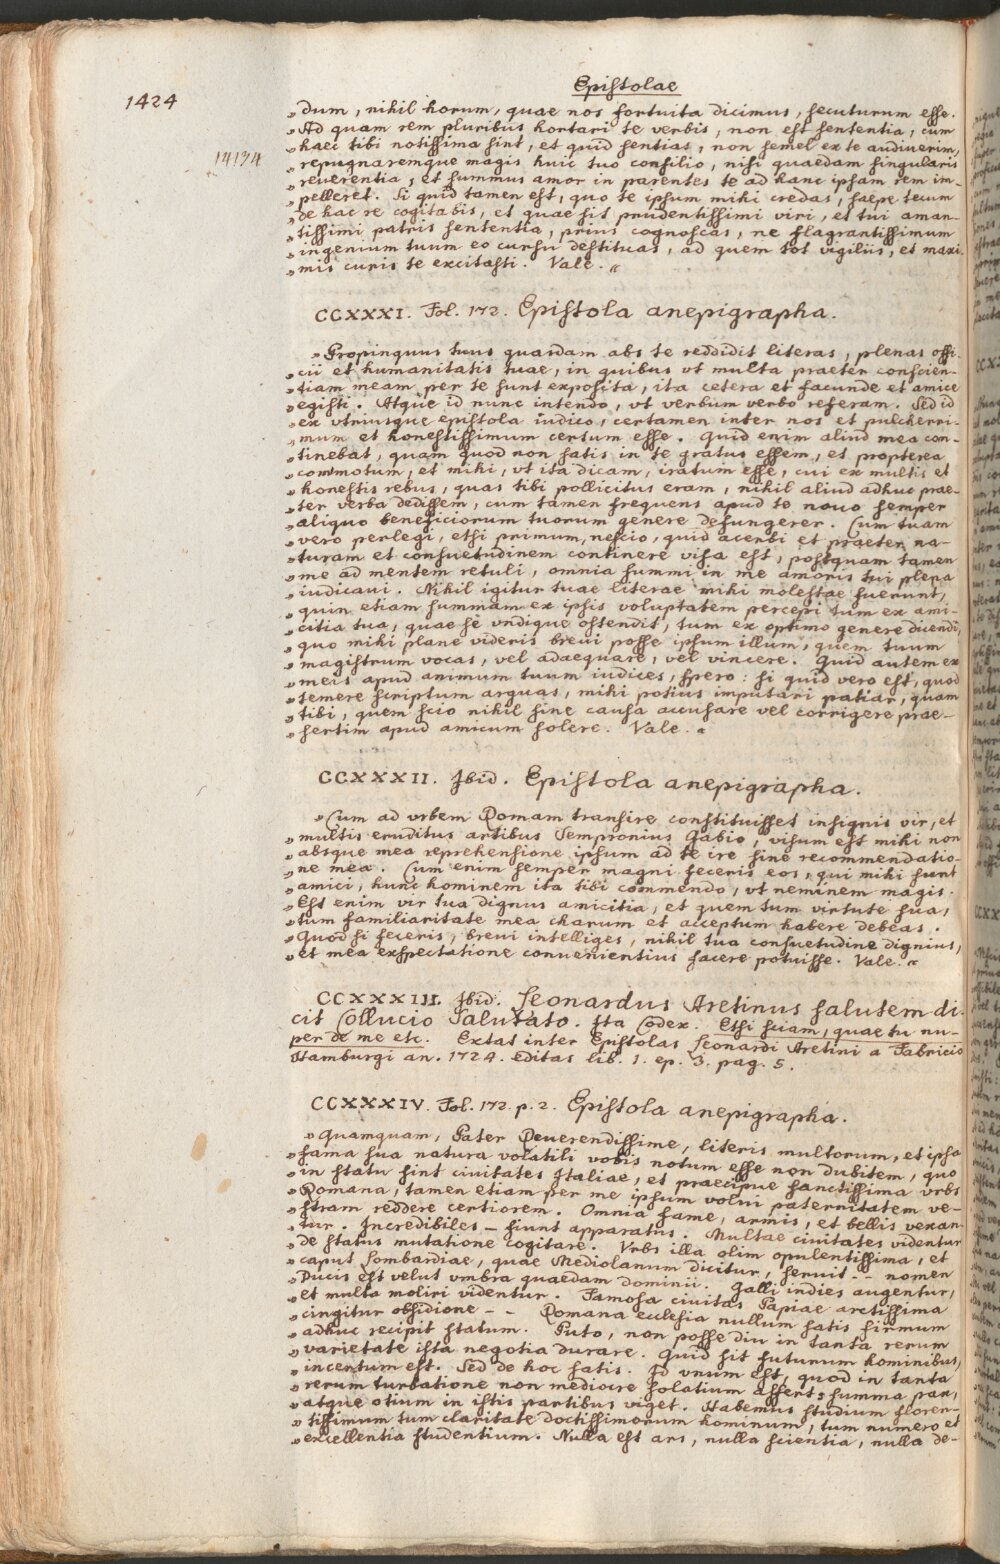 1424
Epistolae
14134
„dum, nihil horum, quae nos fortuita dicimus, secuturum esse.
„Ad quam rem pluribus hortari te verbis, non est sententia, cum
„haec tibi notissima sint, et quid sentias, non semel ex te audiverim,
„repugnaremque magis huic tuo consilio, nisi quaedam singularis
„reverentia, et summus amor in parentes te ad hanc ipsam rem im-
„pelleret. Si quid tamen est, quo te ipsum mihi credas, saepe tecum
„de hac re cogitabis, et quae sit prudentissimi viri, et tui aman-
„tissimi patris sententia, prius cognoscas, ne flagrantissimum
„ingenium tuum eo cursu destituas, ad quem tot vigiliis, et maxi-
„mis curis te excitasti. Vale. „
CCXXXI. Fol. 172. Epistola anepigrapha.
„Propinquus tuus quasdam abs te reddidit literas, plenas offi-
„cii et humanitatis tuae, in quibus vt multa praeter conscien-
„tiam meam per te sunt exposita, ita cetera et facunde et amice
„egisti. Atque id nunc intendo, vt verbum verbo referam. Sed id
„ex vtriusque epistola iudico, certamen inter nos et pulcherri-
„mum et honestissimum certum esse. Quid enim aliud mea con-
„tinebat, quam quod non satis in te gratus essem, et propterea
„commotum, et mihi, vt ita dicam, iratum esse, cui ex multis et
„honestis rebus, quas tibi pollicitus eram, nihil aliud adhuc prae-
„ter verba dedissem, cum tamen frequens apud te nouo semper
„aliquo beneficiorum tuorum genere defungerer. Cum tuam
„vero perlegi, etsi primum, nescio, quid acerbi et praeter na-
„turam et consuetudinem continere visa est, postquam tamen
„me ad mentem retuli, omnia summi in me amoris tui plena
„iudicaui. Nihil igitur tuae literae mihi molestae fuerunt,
„quin etiam summam ex ipsis voluptatem percepi tum ex ami-
„citia tua, quae se vndique ostendit, tum ex optimo genere dicendi,
„quo mihi plane videris breui posse ipsum illum, quem tuum
„magistrum vocas, vel adaequare, vel vincere. Quid autem ex
„meis apud animum tuum iudices, spero: si quid vero est, quod
„temere scriptum arguas, mihi potius imputari patiar, quam
„tibi, quem scio nihil sine causa accusare vel corrigere prae-
„sertim apud amicum solere. Vale. „
CCXXXII. Ibid. Epistola anepigrapha.
„Cum ad vrbem Romam transire constituisset insignis vir, et
„multis eruditus artibus Sempronius Gabio, visum est mihi non
„absque mea reprehensione ipsum ad te ire sine recommendatio-
„ne mea. Cum enim semper magni feceris eos, qui mihi sunt
„amici, hunc hominem ita tibi commendo, vt neminem magis.
„Est enim vir tua dignus amicitia, et quem tum virtute sua,
„tum familiaritate mea charum et acceptum habere debeas.
„Quod si feceris, breui intelliges, nihil tua consuetudine dignius,
„et mea exspectatione conuenientius facere potuisse. Vale. „
CCXXXIII. Ibid. Leonardus Aretinus salutem di-
cit Collucio Salutato. Ita Codex. Etsi sciam, quae tu nu-
per de me etc. Extat inter Epistolas Leonardi Aretini a Fabricio
Hamburgi an. 1724. editas lib. 1. ep. 3. pag. 5.
CCXXXIV. Fol. 172. p. 2. Epistola anepigrapha.
„Quamquam, Pater Reuerendissime, literis multorum, et ipsa
„fama sua natura volatili vobis notum esse non dubitem, quo
„in statu sint ciuitates Italiae, et praecipue sanctissima vrbs
„Romana, tamen etiam per me ipsum volui paternitatem ve-
„stram reddere certiorem. Omnia fame, armis, et bellis vexan-
„tur. Incredibiles – fiunt apparatus. Multae ciuitates videntur
„de status mutatione cogitare. Vrbs illa olim opulentissima, et
„caput Lombardiae, quae Mediolanum dicitur, seruit - - nomen
„Ducis est velut vmbra quaedam dominii. Galli indies augentur,
„et multa moliri videntur. Famosa ciuitas Papiae arctissima
„cingitur obsidione - - Romana ecclesia nullum satis firmum
„adhuc recipit statum. Puto, non posse diu in tanta rerum
„varietate ista negotia durare. Quid sit futurum hominibus,
„incertum est. Sed de hoc satis. Id vnum est, quod in tanta
„rerum turbatione non mediocre solatium affert: summa pax,
„atque otium in istis partibus viget. Habemus studium floren-
„tissimum tum claritate doctissimorum hominum, tum numero et
„excellentia studentium. Nulla est ars, nulla scientia, nulla de-